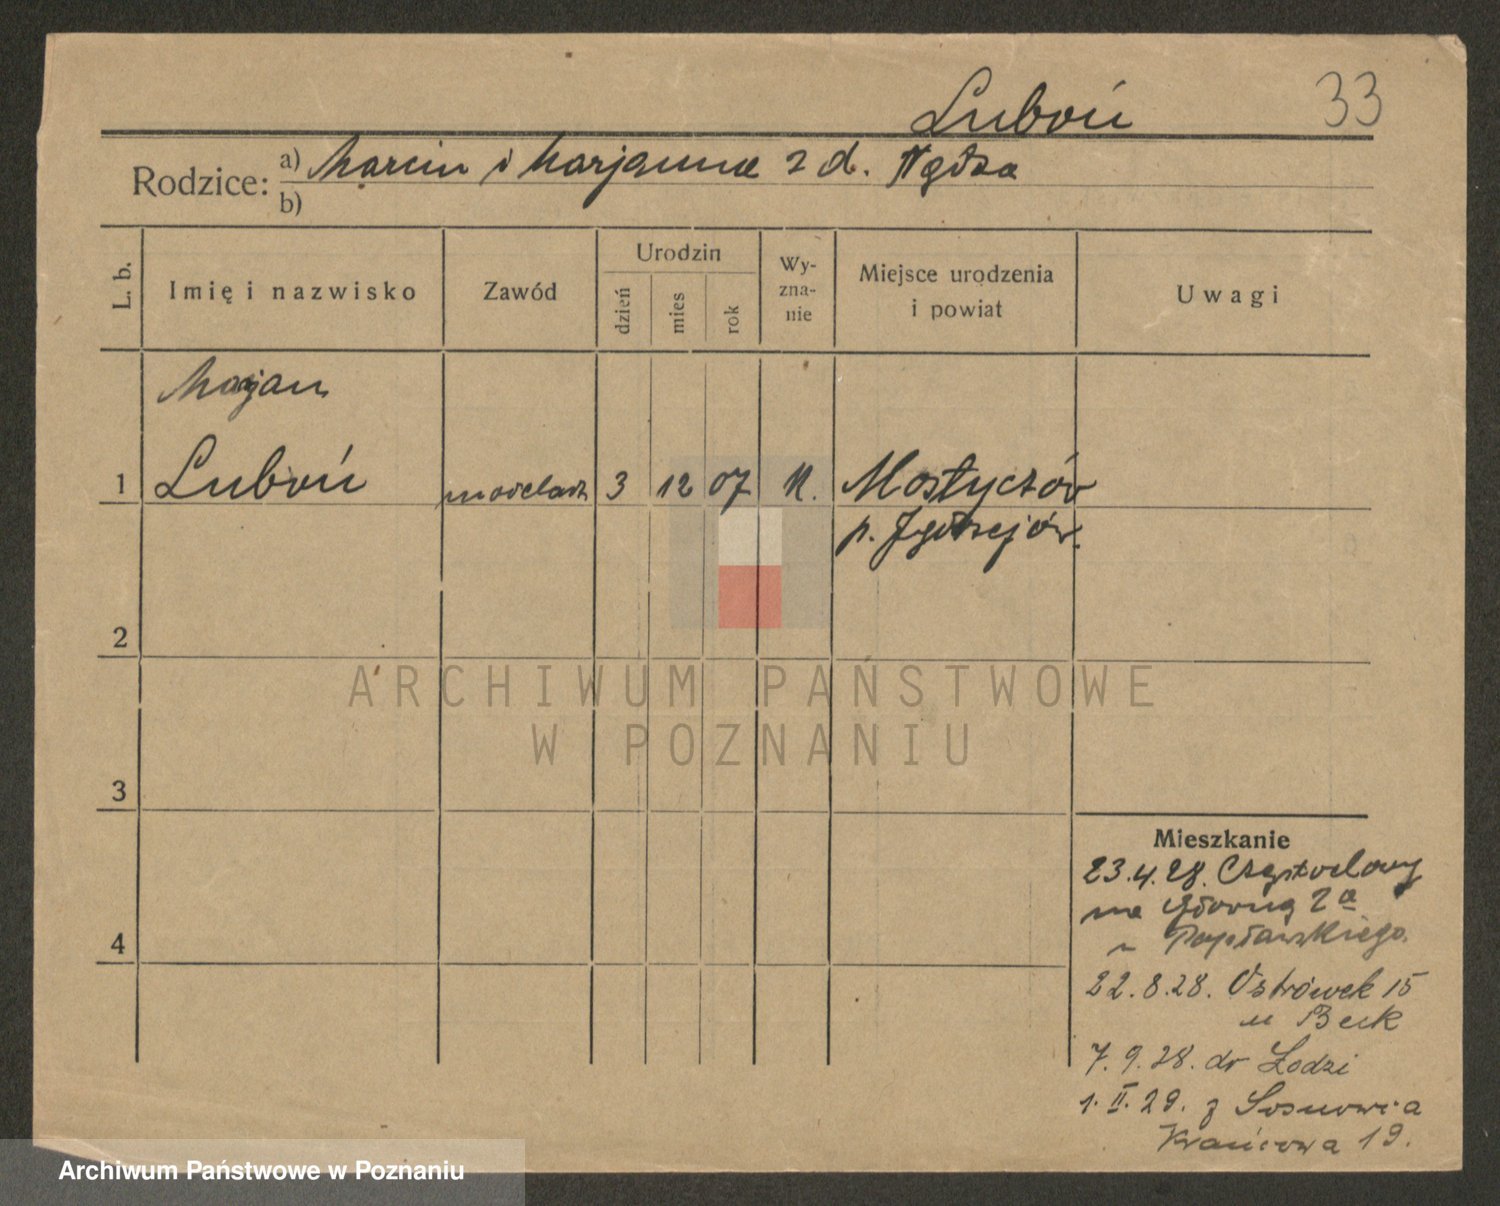 33
Luboń
Rodzice: a) Marcin i Marjanna z d.
b)
L. b.
Imię i nazwisko
Zawód
Urodzin
dzień
mies
rok
Wy-
zna-
nie
Miejsce urodzenia
i powiat
Uwagi
Marjan
1 Luboń 3 12 07 Mostyczów
p. Jędrzejów.
2
3
4
Mieszkanie
23.4.28. Częstochowy
na Główną 2a
u Popławskiego.
22.8.28. Ostrówek 15
u Beck
7.9.28. do Łodzi
1.II.29. z Sosnowca
Krańcowa 19.
ARCHIWUM PAŃSTWOWE
W POZNANIU
Archiwum Państwowe w Poznaniu